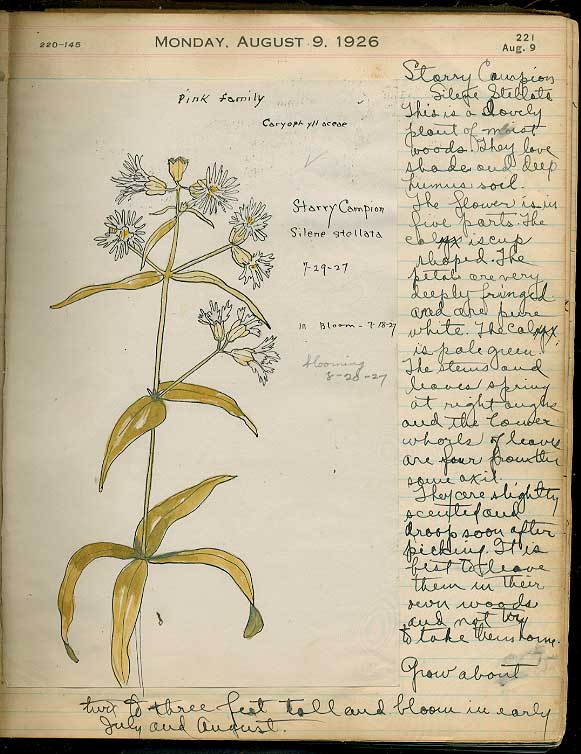 220-145
MONDAY, AUGUST 9, 1926
221
Aug. 9
Pink family
Caryophyllaceae
Starry Campion
Silene stellata
7-29-27
in Bloom - 7-18-27
blooming
8-20-27
Starry Campion
Silene Stellata
This is a lovely
plant of moist
woods. They love
shade and deep
humus soil.
The flower is in
five parts. The
calyx is cup
shaped. The
petals are very
deeply fringed
and are pure
white. The calyx
is pale green.
The stems and
leaves spring
at right angles
and the lower
whorls of leaves
are four from the
same axil.
They are slightly
scented and
droop soon after
picking. It is
best to leave
them in their
own woods
and not try
to take them home.
Grow about
two to three feet tall and bloom in early
July and August.